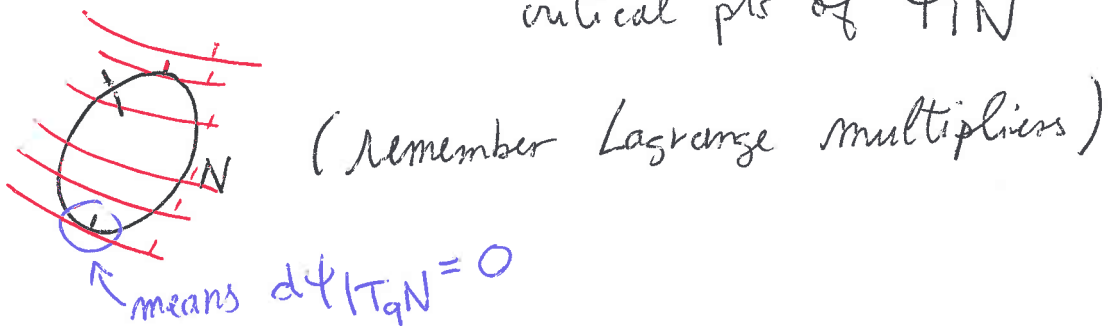 critical pts of ψ|N
(remember Lagrange multipliers)
N
means dψ|TqN = 0